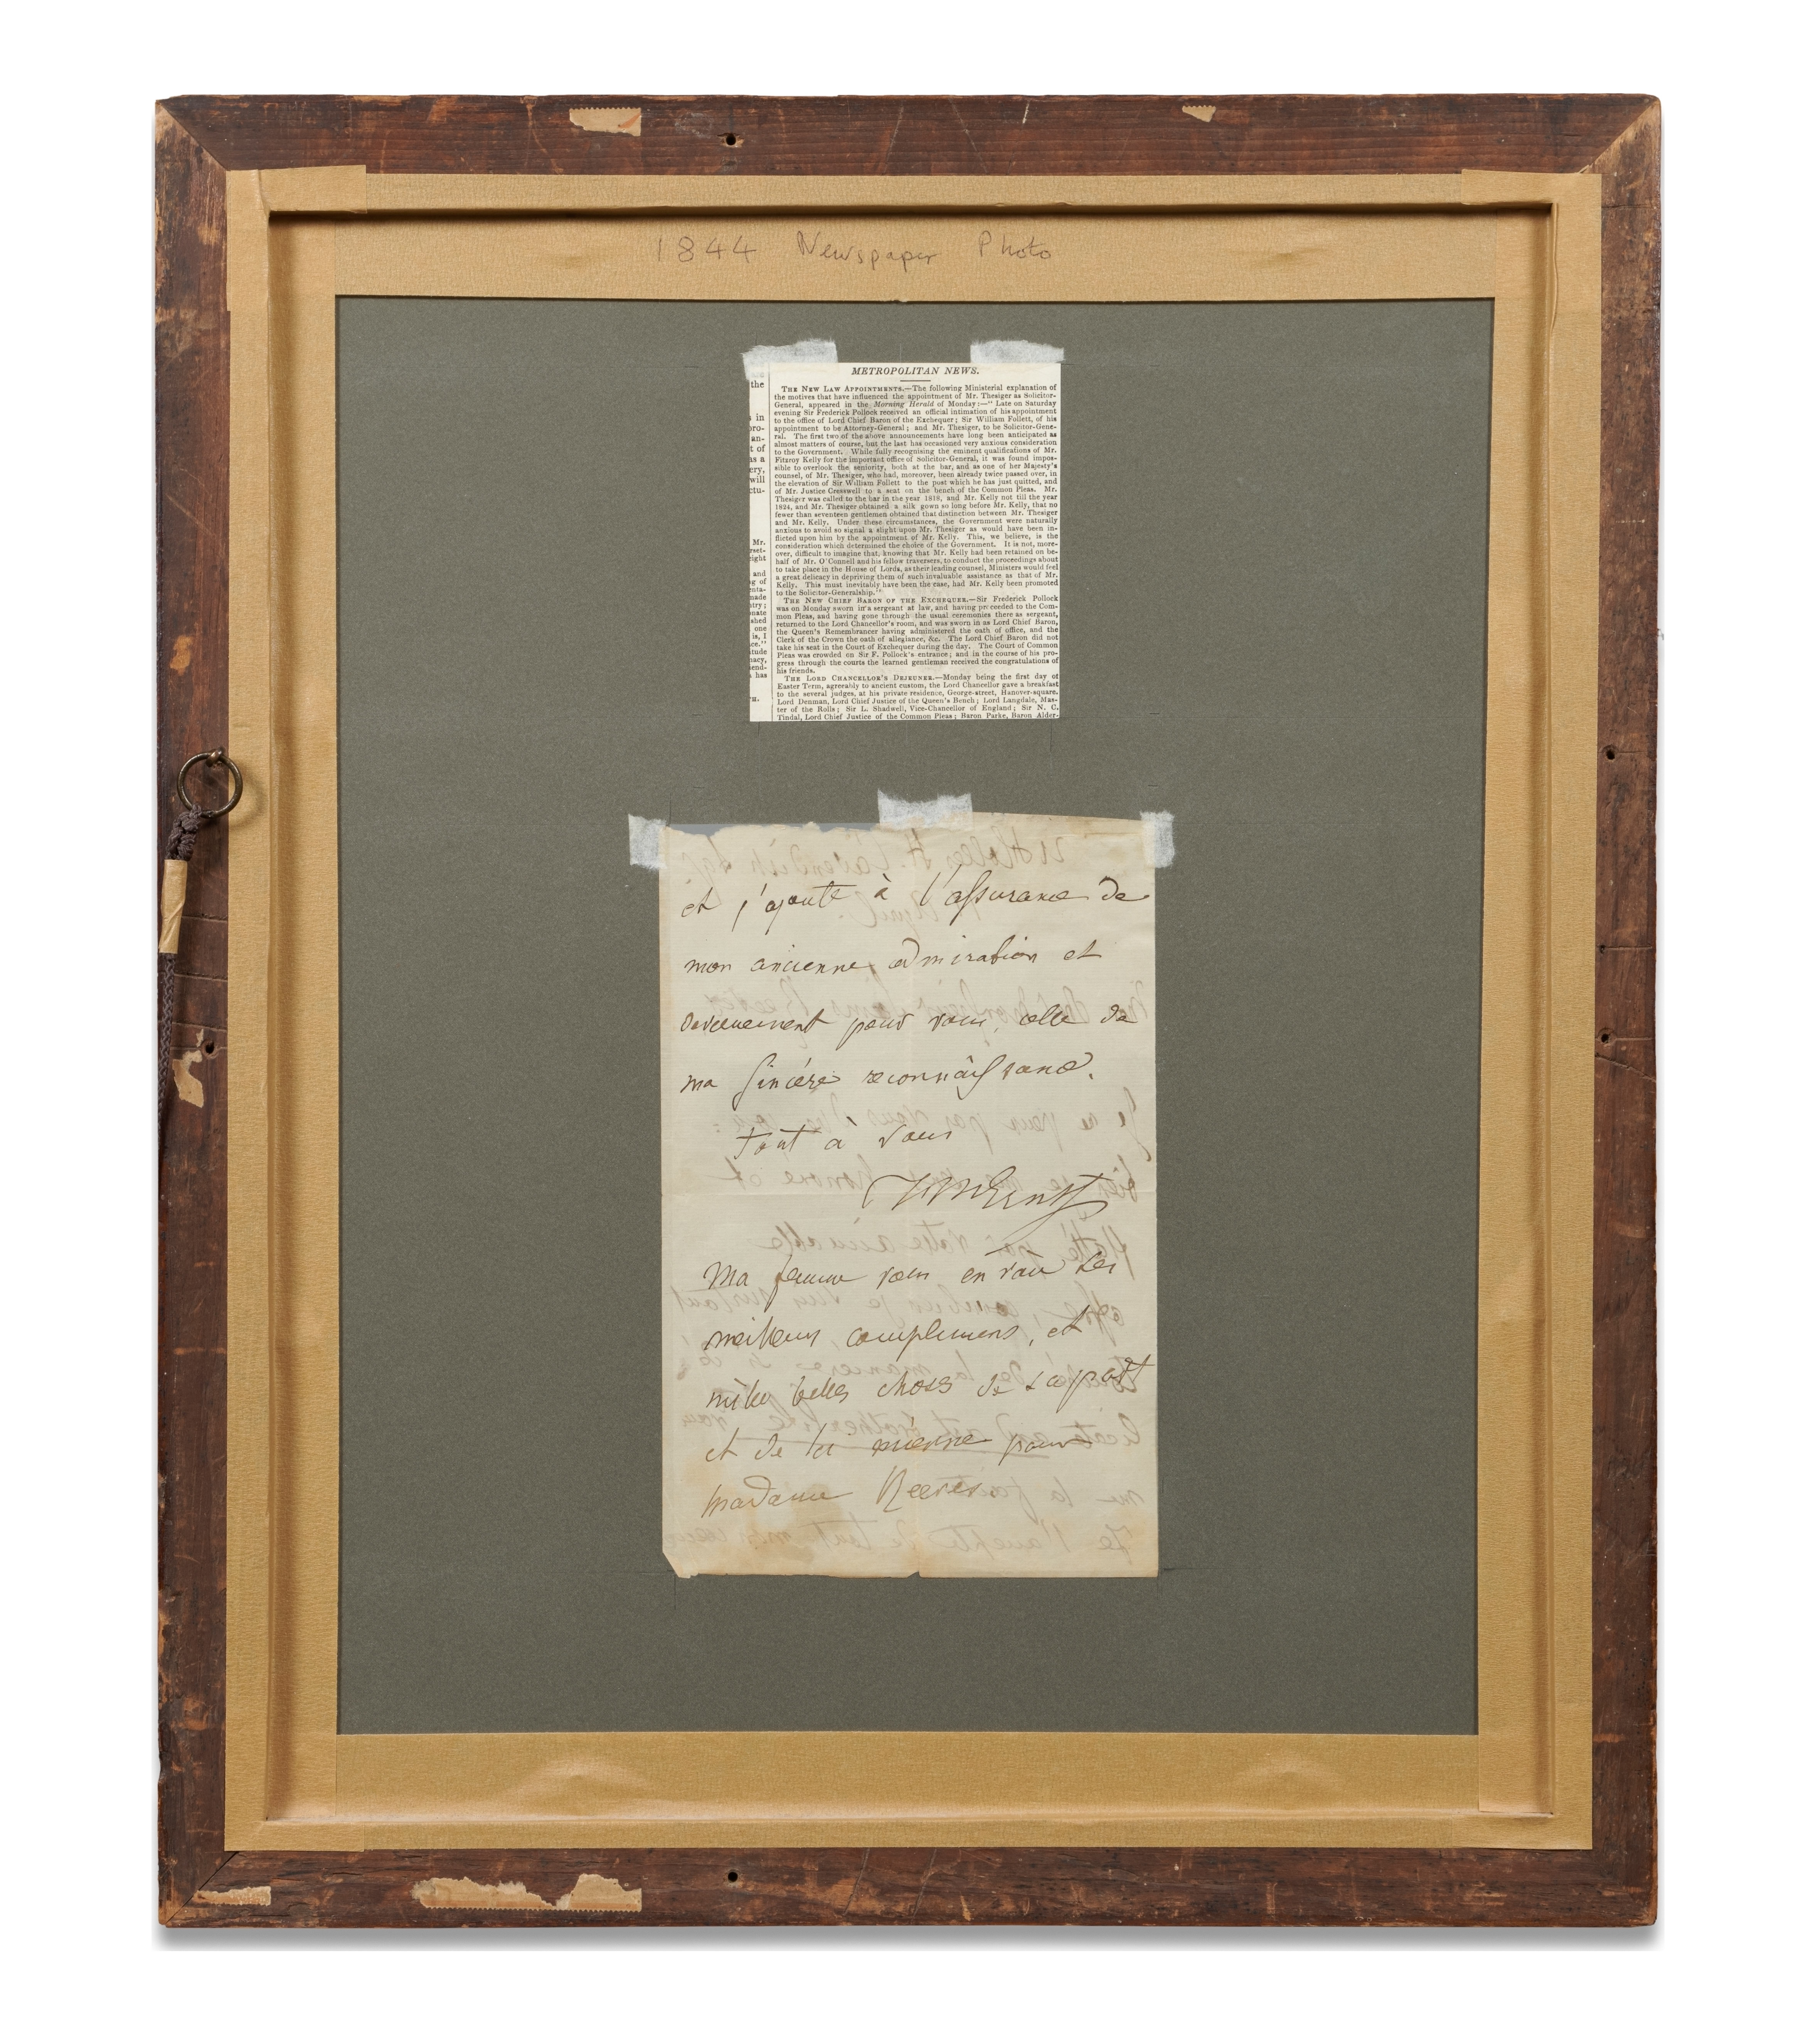 1844 Newspaper Photo
METROPOLITAN NEWS.
THE NEW LAW APPOINTMENTS.—The following Ministerial explanation of
the motives that have influenced the appointment of Mr. Thesiger as Solicitor-
General, appeared in the Morning Herald of Monday:—"Late on Saturday
evening Sir Frederick Pollock received an official intimation of his appointment
to the office of Lord Chief Baron of the Exchequer; Sir William Follett, of his
appointment to be Attorney-General; and Mr. Thesiger, to be Solicitor-Gene-
ral. The first two of the above announcements have long been anticipated as
almost matters of course, but the last has occasioned very anxious consideration
to the Government. While fully recognising the eminent qualifications of Mr.
Fitzroy Kelly for the important office of Solicitor-General, it was found impos-
sible to overlook the seniority, both at the bar, and as one of her Majesty's
counsel, of Mr. Thesiger, who had, moreover, been already twice passed over, in
the elevation of Sir William Follett to the post which he has just quitted, and
of Mr. Justice Cresswell to a seat on the bench of the Common Pleas. Mr.
Thesiger was called to the bar in the year 1818, and Mr. Kelly not till the year
1824, and Mr. Thesiger obtained a silk gown so long before Mr. Kelly, that no
fewer than seventeen gentlemen obtained that distinction between Mr. Thesiger
and Mr. Kelly. Under these circumstances, the Government were naturally
anxious to avoid so signal a slight upon Mr. Thesiger as would have been in-
flicted upon him by the appointment of Mr. Kelly. This, we believe, is the
consideration which determined the choice of the Government. It is not, more-
over, difficult to imagine that, knowing that Mr. Kelly had been retained on be-
half of Mr. O'Connell and his fellow traversers, to conduct the proceedings about
to take place in the House of Lords, as their leading counsel, Ministers would feel
a great delicacy in depriving them of such invaluable assistance as that of Mr.
Kelly. This must inevitably have been the case, had Mr. Kelly been promoted
to the Solicitor-Generalship."
THE NEW CHIEF BARON OF THE EXCHEQUER.—Sir Frederick Pollock
was on Monday sworn in a sergeant at law, and having proceeded to the Com-
mon Pleas, and having gone through the usual ceremonies there as sergeant,
returned to the Lord Chancellor's room, and was sworn in as Lord Chief Baron,
the Queen's Remembrancer having administered the oath of office, and the
Clerk of the Crown the oath of allegiance, &c. The Lord Chief Baron did not
take his seat in the Court of Exchequer during the day. The Court of Common
Pleas was crowded on Sir F. Pollock's entrance; and in the course of his pro-
gress through the courts the learned gentleman received the congratulations of
his friends.
THE LORD CHANCELLOR'S DEJEUNER.—Monday being the first day of
Easter Term, agreeably to ancient custom, the Lord Chancellor gave a breakfast
to the several judges, at his private residence, George-street, Hanover-square.
Lord Denman, Lord Chief Justice of the Queen's Bench; Lord Langdale, Mas-
ter of the Rolls; Sir L. Shadwell, Vice-Chancellor of England; Sir N. C.
Tindal, Lord Chief Justice of the Common Pleas; Baron Parke, Baron Alder-
et j'ajoute à l'assurance de
mon ancienne admiration et
devouement pour vous, celle de
ma sincère reconnaissance.
tout à vous
HWErnst
Ma femme vous envoie ses
meilleurs complimens, et
mille belles choses de sa part
et de la mienne pour
madame Reeves